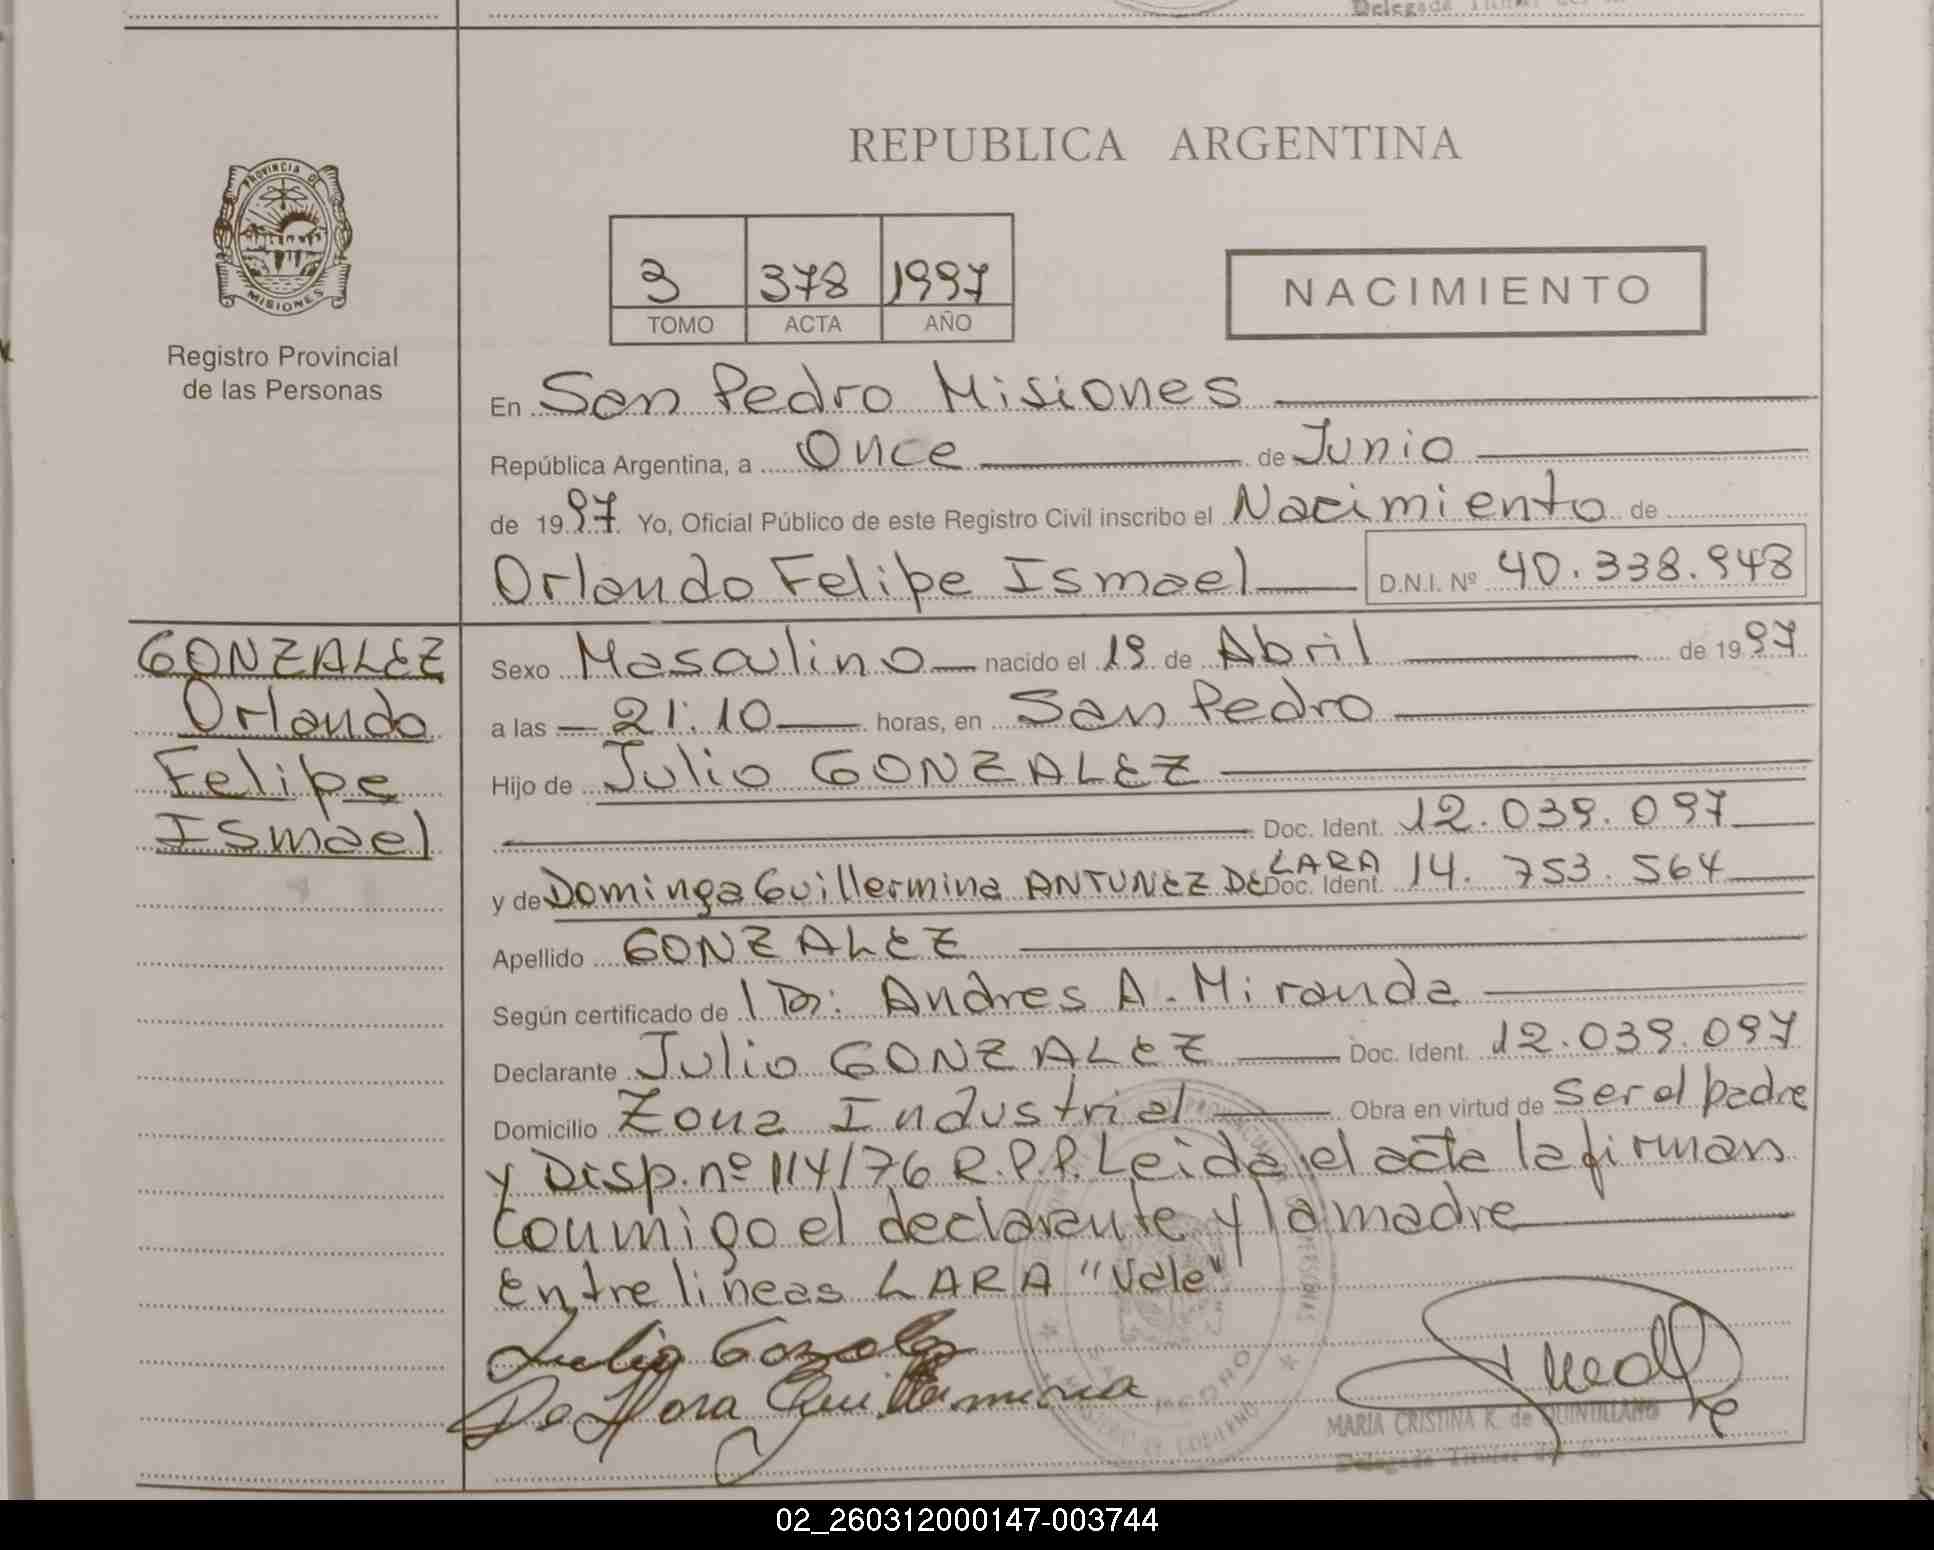 Delegada Titular
PROVINCIA DE
MISIONES
Registro Provincial
de las Personas
REPUBLICA ARGENTINA
3 378 1997
TOMO ACTA AÑO
NACIMIENTO
En San Pedro Misiones
República Argentina, a Once de Junio
de 1997 Yo, Oficial Público de este Registro Civil inscribo el Nacimiento de
Orlando Felipe Ismael D.N.I. Nº 40.338.948
GONZALEZ
Orlando
Felipe
Ismael
Sexo Masculino nacido el 19 de Abril de 1997
a las 21:10 horas, en San Pedro
Hijo de Julio GONZALEZ
Doc. Ident. 12.039.097
y de Dominga Guillermina ANTUNEZ DE LARA Doc. Ident. 14.753.564
Apellido GONZALEZ
Según certificado de l Dr: Andres A. Miranda
Declarante Julio GONZALEZ Doc. Ident. 12.039.097
Domicilio Zona Industrial Obra en virtud de ser el padre
y Disp. nº 114/76 R.P.P. Leida el acta la firman
conmigo el declarante y la madre
Entre lineas LARA "Vale"
Julio Gozalez
De Lara Guillermina
SAN PEDRO
MINISTERIO DE GOBIERNO
MARIA CRISTINA K. de QUINTILLANO
Delegada Titular
02_260312000147-003744